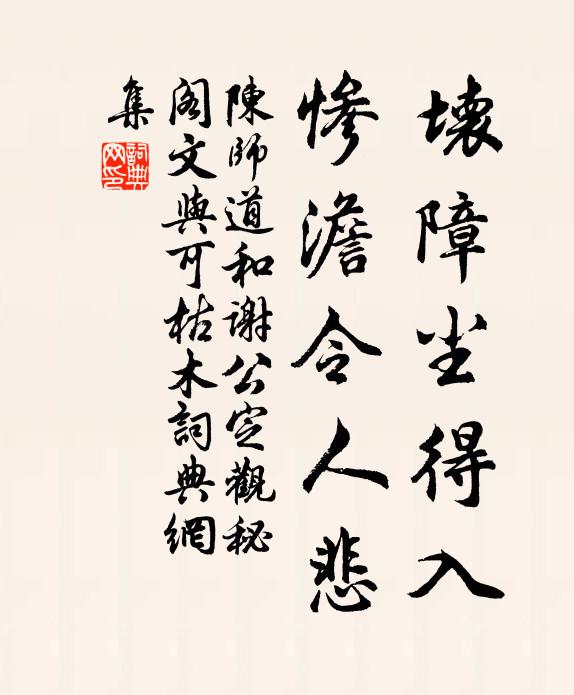 壞障坐得入
慘澹令人悲
陳師道和謝公定觀秘
閣文與可枯木詞典網
集
詞典
网印